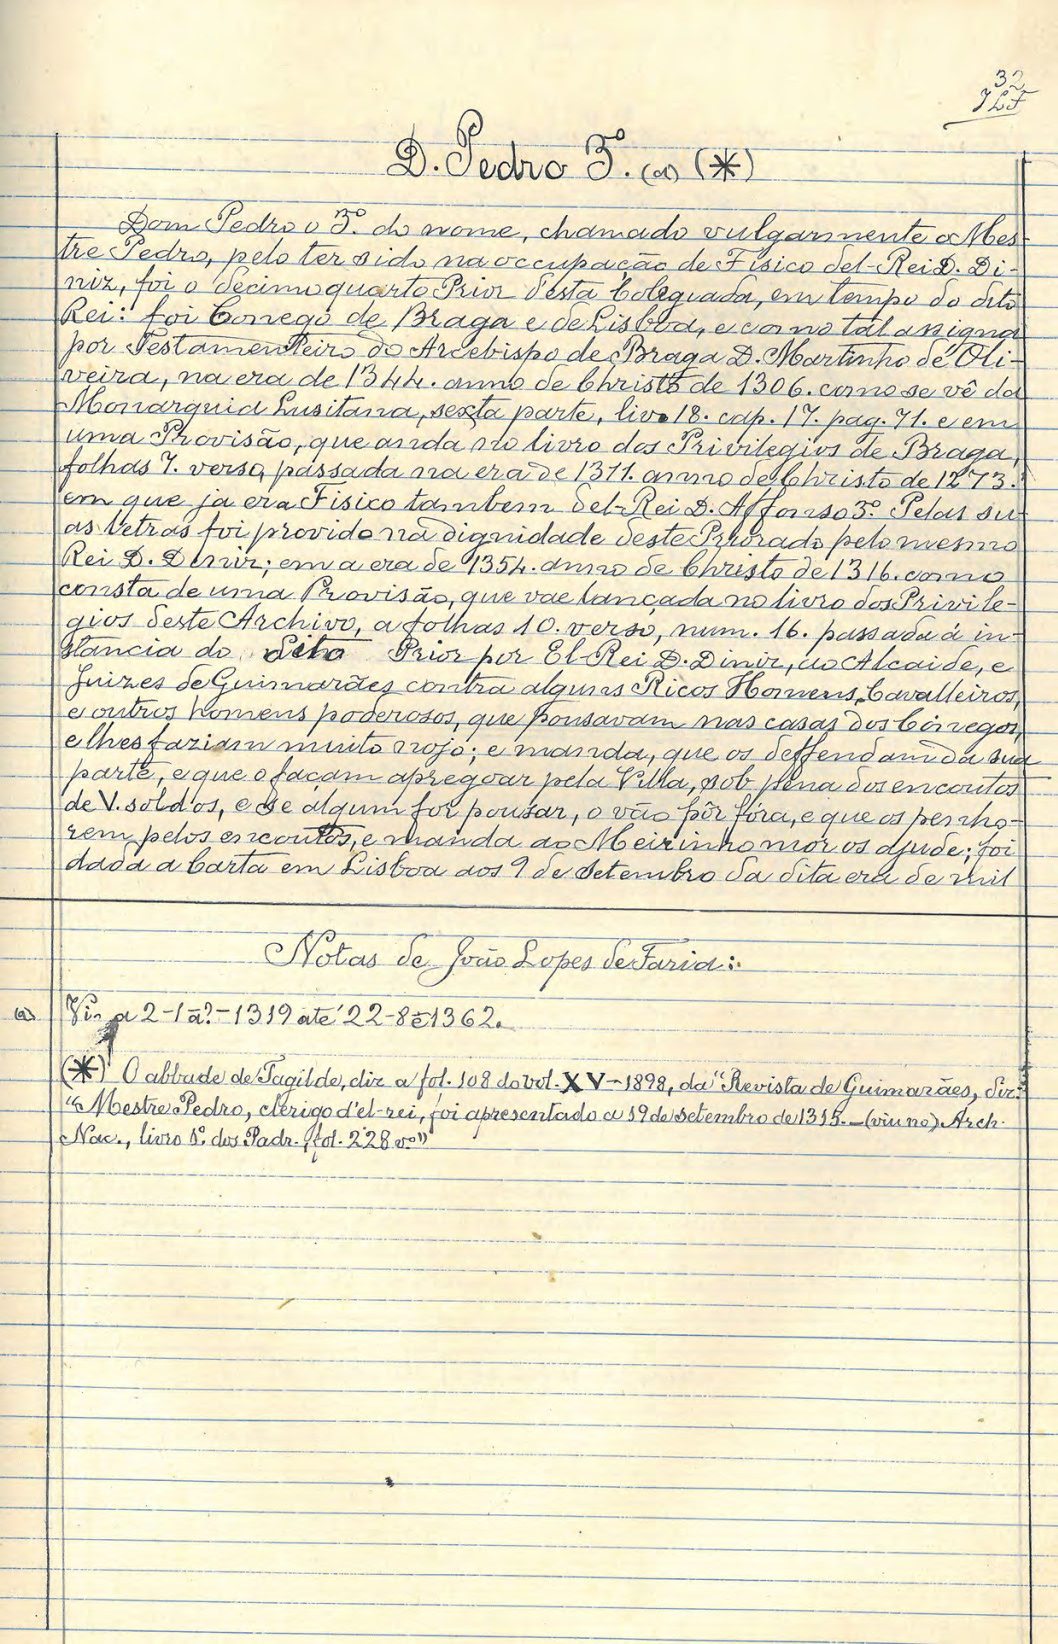 32
JLF
D. Pedro 3.º (a) (*)
Dom Pedro o 3.º do nome, chamado vulgarmente o Mes-
tre Pedro, pelo ter sido na occupação de Fisico del-Rei D. Di-
niz, foi o decimo quarto Prior desta Colegiada, em tempo do dito
Rei: foi Conego de Braga e de Lisboa, e como tal assigna
por Testamenteiro do Arcebispo de Braga D. Martinho de Oli-
veira, na era de 1344. anno de Christo de 1306. como se vê da
Monarquia Lusitana, sexta parte, liv. 18. cap. 17. pag. 71. e em
uma Provisão, que anda no livro dos Privilegios de Braga,
folhas 7. verso, passada na era de 1311. anno de Christo de 1273.
em que ja era Fisico tambem del-Rei D. Affonso 3.º Pelas su-
as letras foi provido na dignidade deste Priorado pelo mesmo
Rei D. Diniz; em a era de 1354. anno de Christo de 1316. como
consta de uma Provisão, que vae lançada no livro dos Privile-
gios deste Archivo, a folhas 10. verso, num. 16. passada á in-
stancia do dito Prior por El-Rei D. Diniz, ao Alcaide, e
Juizes de Guimarães contra alguns Ricos Homens, Cavalleiros,
e outros homens poderosos, que pousavam nas casas dos Cónegos,
e lhes faziam muito nojo; e manda, que os deffendam da sua
parte, e que o façam apregoar pela Villa, sob pena dos encoutos
de V. soldos, e se algum for pousar, o vão pôr fóra, e que os penho-
rem pelos encoutos, e manda ao Meirinho mór os ajude; foi
dada a Carta em Lisboa aos 9 de setembro da dita era de mil
Notas de João Lopes de Faria:
(a) Vi-o a 2-1.ª?-1319 até 22-8-e 1362.
(*) O abbade de Tagilde, diz a fol. 108 do vol. XV-1898, da "Revista de Guimarães, diz:
"Mestre Pedro, clerigo d'el-rei, foi apresentado a 19 de setembro de 1315.-(viu no) Arch.
Nac., livro 1.º dos Padr. fol. 228 v.º"